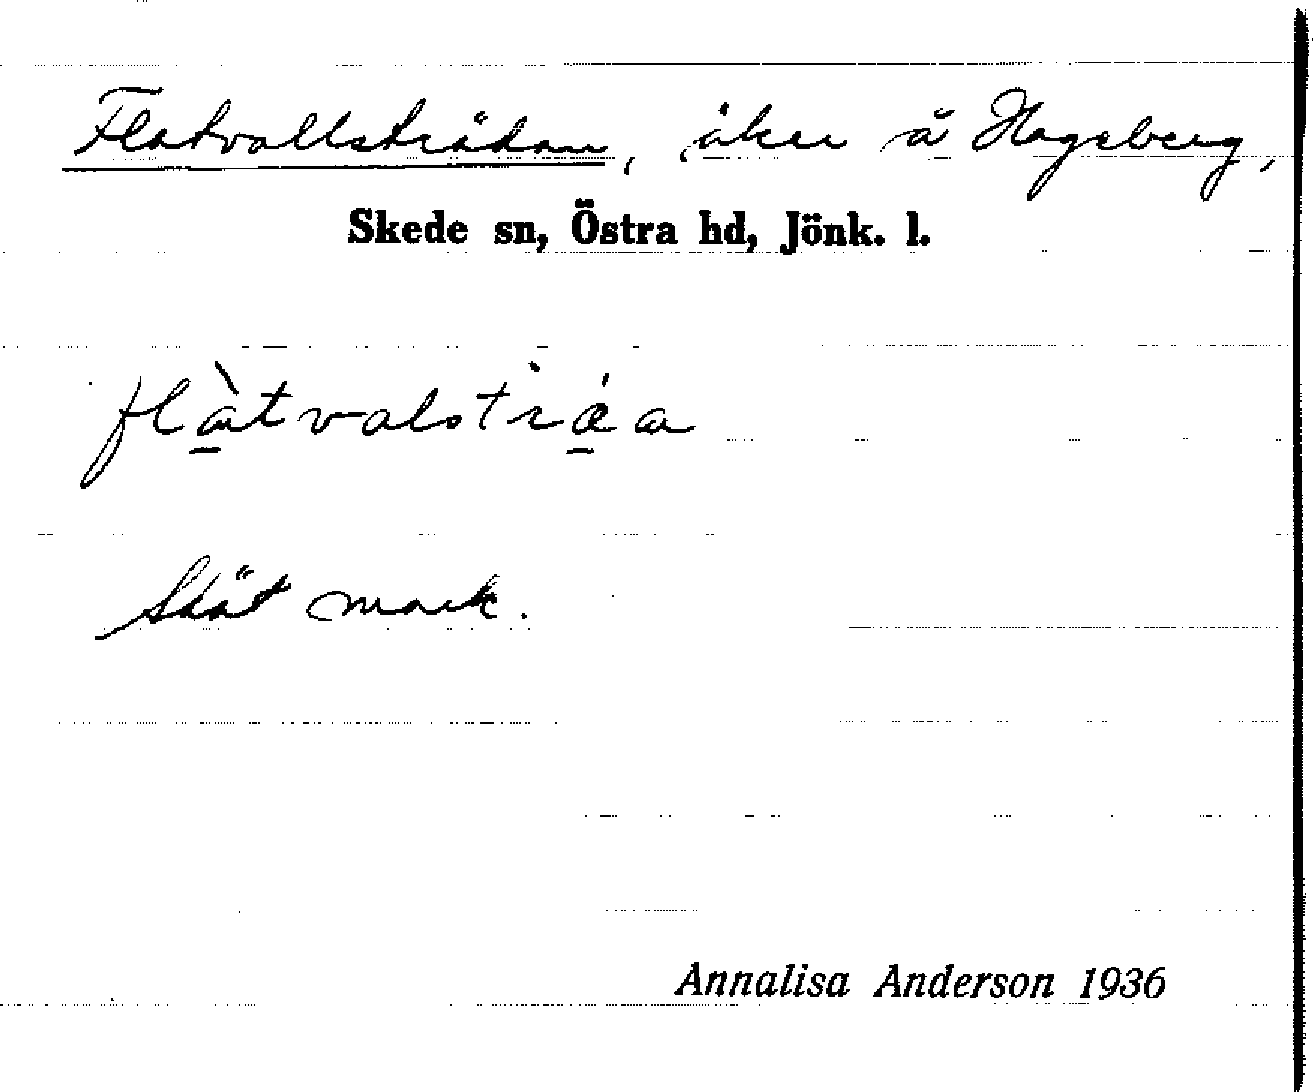 Flatvallsträdan, åker å Hagaberg,
Skede sn, Östra hd, Jönk. l.
flàtvalstrǽa
Slät mark.
Annalisa Anderson 1936